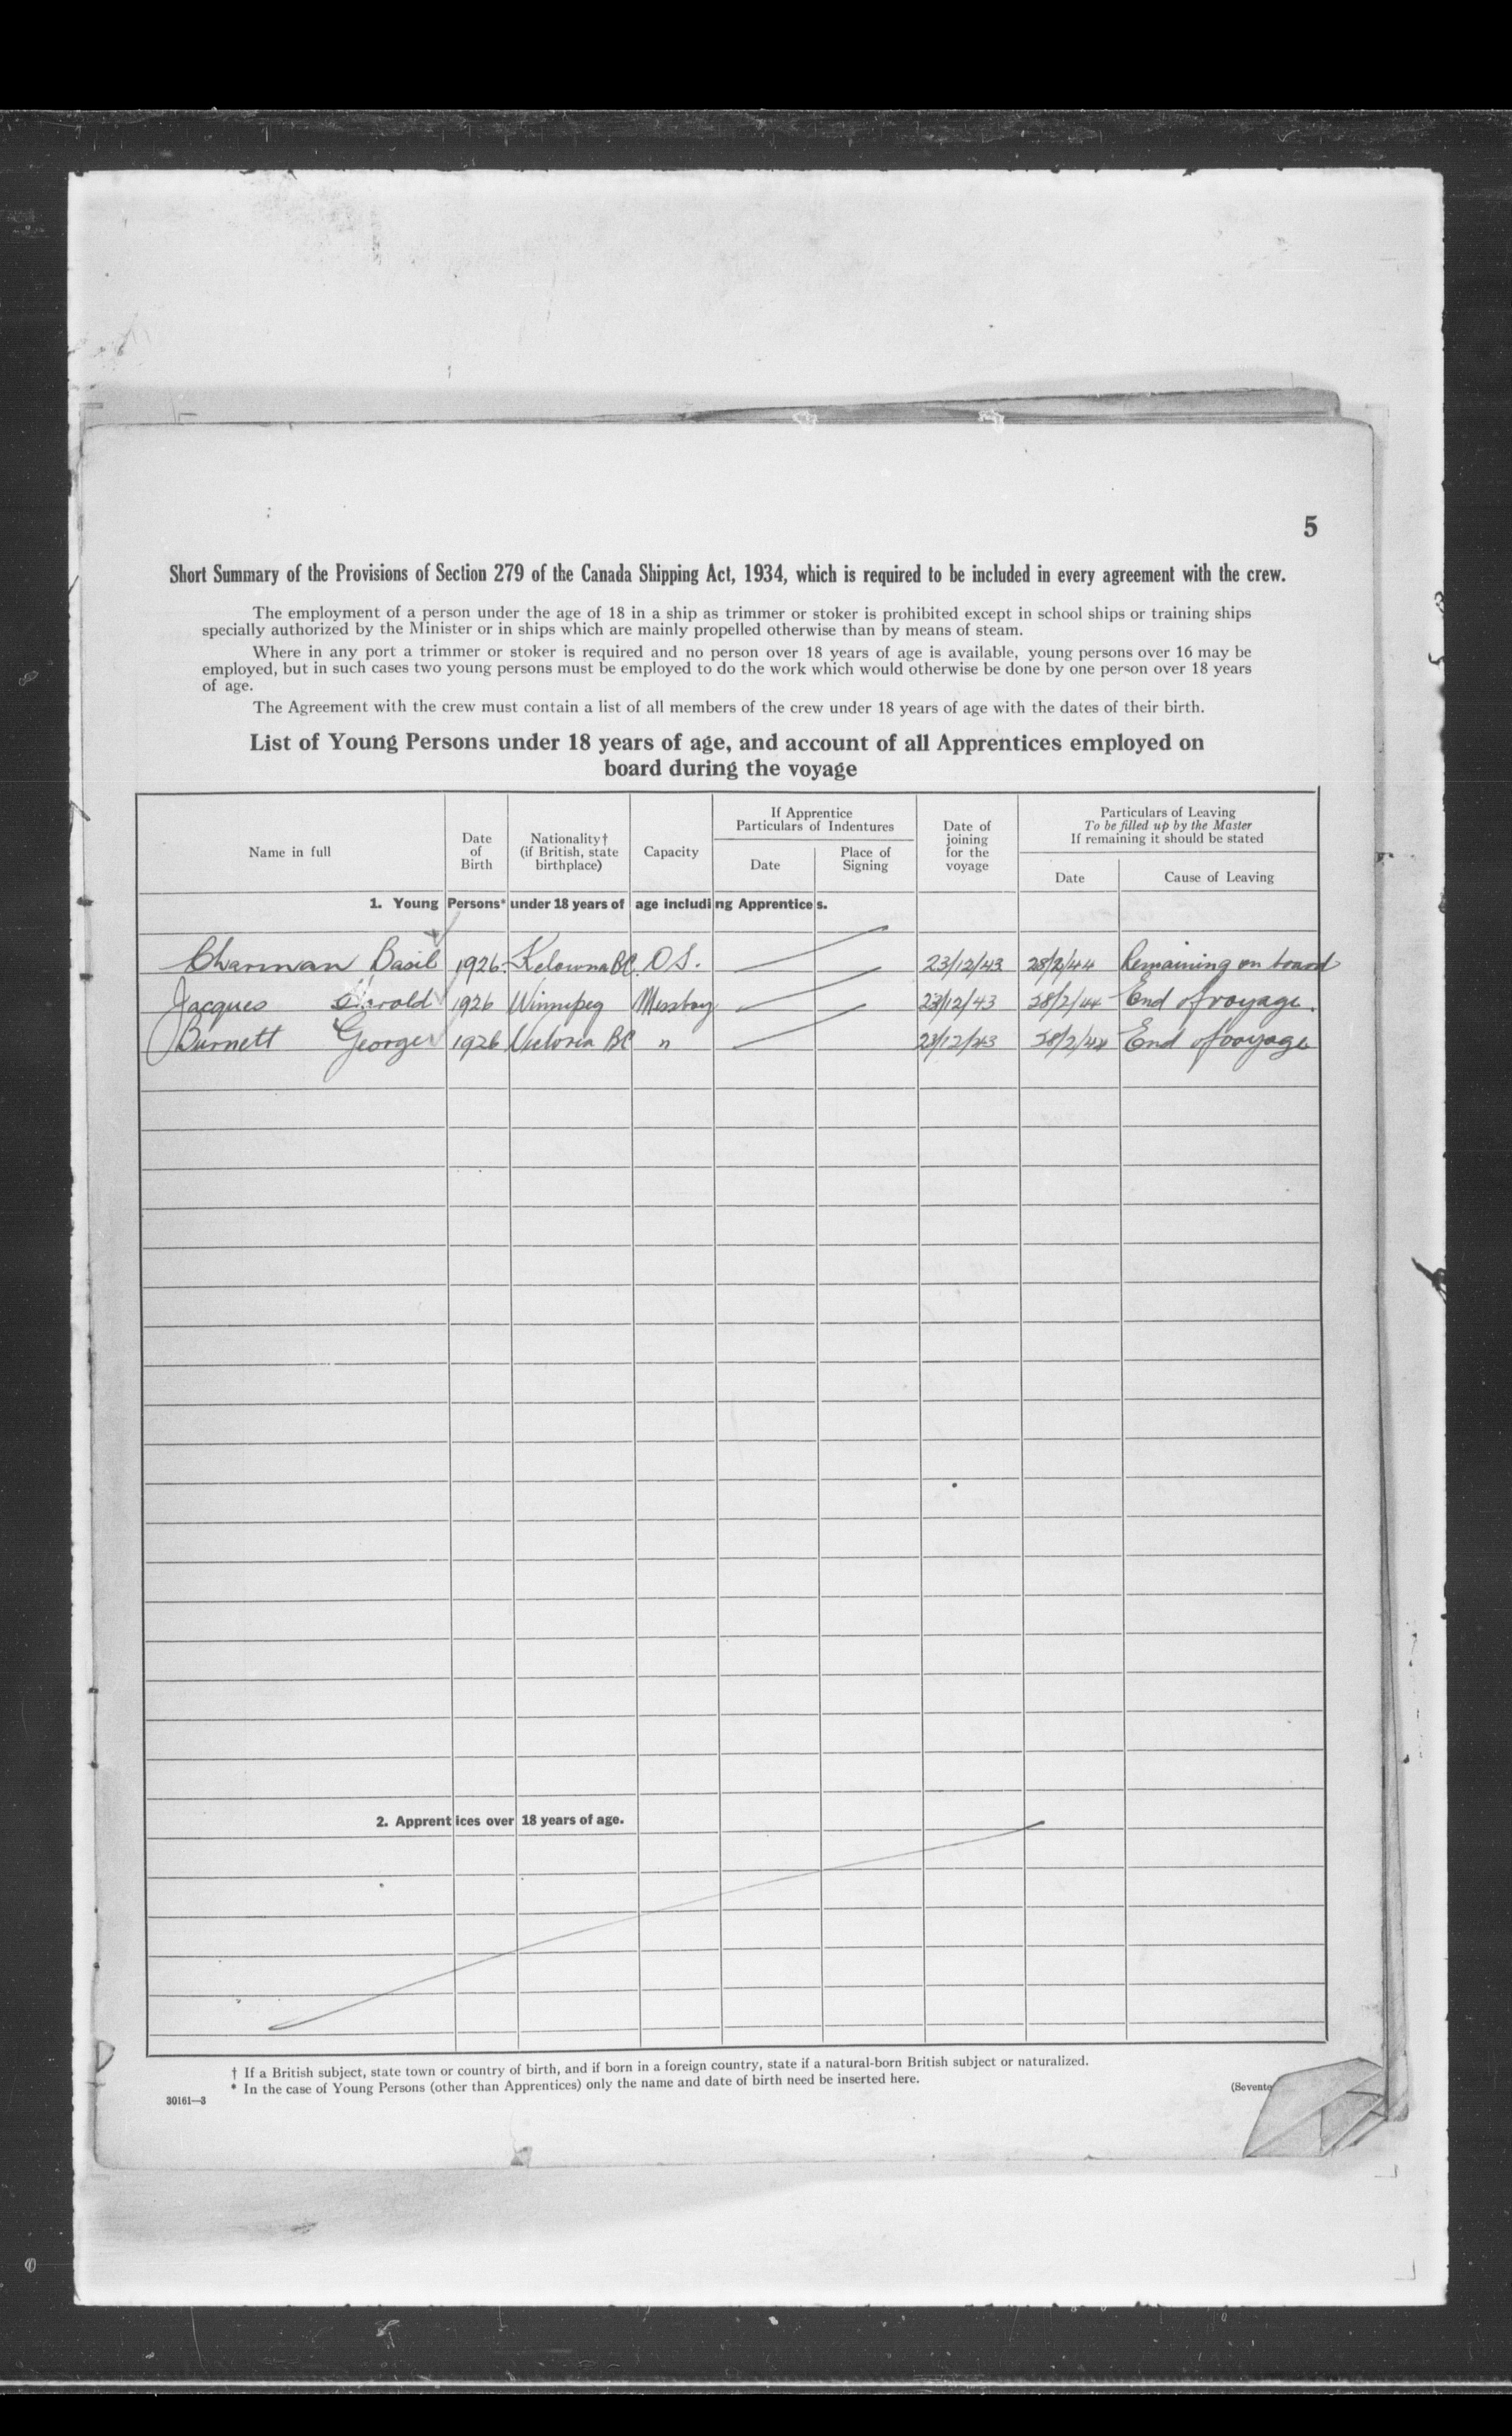 5
Short Summary of the Provisions of Section 279 of the Canada Shipping Act, 1934, which is required to be included in every agreement with the crew.
The employment of a person under the age of 18 in a ship as trimmer or stoker is prohibited except in school ships or training ships
specially authorized by the Minister or in ships which are mainly propelled otherwise than by means of steam.
Where in any port a trimmer or stoker is required and no person over 18 years of age is available, young persons over 16 may be
employed, but in such cases two young persons must be employed to do the work which would otherwise be done by one person over 18 years
of age.
The Agreement with the crew must contain a list of all members of the crew under 18 years of age with the dates of their birth.
List of Young Persons under 18 years of age, and account of all Apprentices employed on
board during the voyage
Name in full
Date
of
Birth
Nationality†
(if British, state
birthplace)
Capacity
If Apprentice
Particulars of Indentures
Date
Place of
Signing
Date of
joining
for the
voyage
Particulars of Leaving
To be filled up by the Master
If remaining it should be stated
Date
Cause of Leaving
1. Young Persons* under 18 years of age including Apprentices.
Charman Basil 1926 Kelowna BC. O.S. 23/12/43 28/2/44 Remaining on board
Jacques Harold 1926 Winnipeg Messboy 23/12/43 28/2/44 End of voyage.
Burnett George 1926 Victoria BC " 23/12/43 28/2/44 End of voyage
2. Apprentices over 18 years of age.
† If a British subject, state town or country of birth, and if born in a foreign country, state if a natural-born British subject or naturalized.
* In the case of Young Persons (other than Apprentices) only the name and date of birth need be inserted here.
30161—3
(Sevente